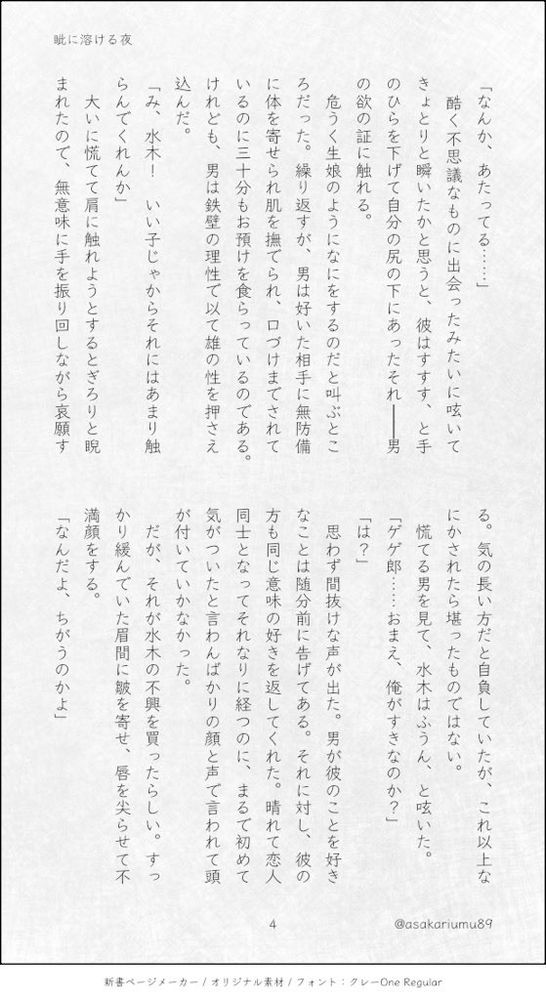 眦に溶ける夜
「なんか、あたってる……」
　酷く不思議なものに出会ったみたいに呟いて
きょとりと瞬いたかと思うと、彼はすすす、と手
のひらを下げて自分の尻の下にあったそれ――男
の欲の証に触れる。
　危うく生娘のようになにをするのだと叫ぶとこ
ろだった。繰り返すが、男は好いた相手に無防備
に体を寄せられ肌を撫でられ、口づけまでされて
いるのに三十分もお預けを食らっているのである。
けれども、男は鉄壁の理性で以て雄の性を押さえ
込んだ。
「み、水木！　いい子じゃからそれにはあまり触
らんでくれんか」
　大いに慌てて肩に触れようとするとぎろりと睨
まれたので、無意味に手を振り回しながら哀願す
る。気の長い方だと自負していたが、これ以上な
にかされたら堪ったものではない。
　慌てる男を見て、水木はふうん、と呟いた。
「ゲゲ郎……おまえ、俺がすきなのか？」
「は？」
　思わず間抜けな声が出た。男が彼のことを好き
なことは随分前に告げてある。それに対し、彼の
方も同じ意味の好きを返してくれた。晴れて恋人
同士となってそれなりに経つのに、まるで初めて
気がついたと言わんばかりの顔と声で言われて頭
が付いていかなかった。
　だが、それが水木の不興を買ったらしい。すっ
かり緩んでいた眉間に皺を寄せ、唇を尖らせて不
満顔をする。
「なんだよ、ちがうのかよ」
4
@asakariumu89
新書ページメーカー / オリジナル素材 / フォント：クレーOne Regular